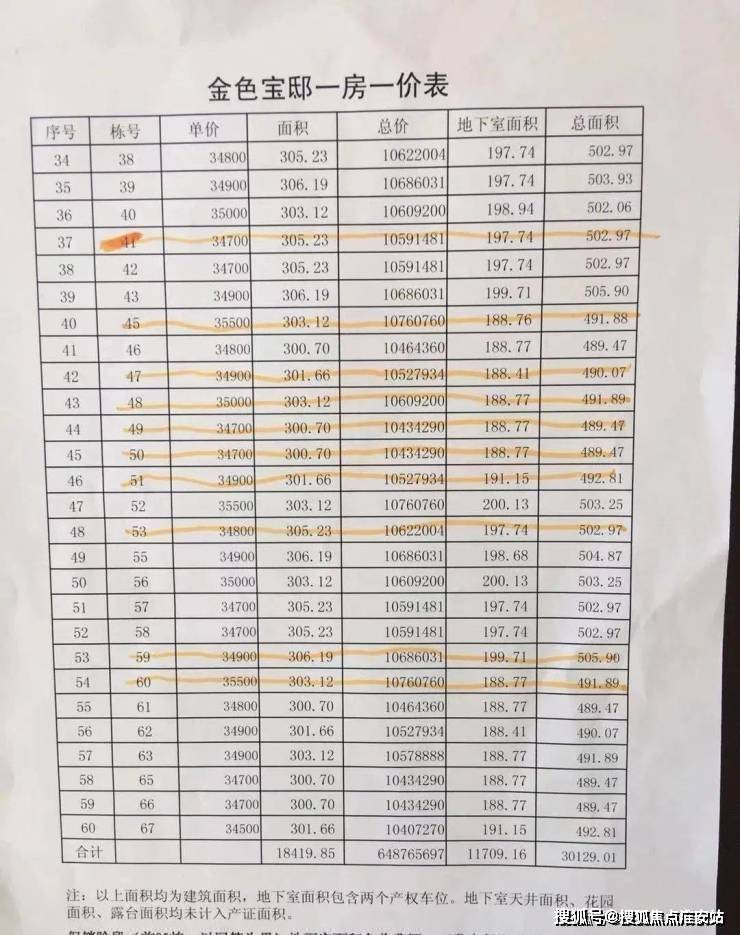 金色宝邸一房一价表
序号 栋号 单价 面积 总价 地下室面积 总面积
34 38 34800 305.23 10622004 197.74 502.97
35 39 34900 306.19 10686031 197.74 503.93
36 40 35000 303.12 10609200 198.94 502.06
37 41 34700 305.23 10591481 197.74 502.97
38 42 34700 305.23 10591481 197.74 502.97
39 43 34900 306.19 10686031 199.71 505.90
40 45 35500 303.12 10760760 188.76 491.88
41 46 34800 300.70 10464360 188.77 489.47
42 47 34900 301.66 10527934 188.41 490.07
43 48 35000 303.12 10609200 188.77 491.89
44 49 34700 300.70 10434290 188.77 489.47
45 50 34700 300.70 10434290 188.77 489.47
46 51 34900 301.66 10527934 191.15 492.81
47 52 35500 303.12 10760760 200.13 503.25
48 53 34800 305.23 10622004 197.74 502.97
49 55 34900 306.19 10686031 198.68 504.87
50 56 35000 303.12 10609200 200.13 503.25
51 57 34700 305.23 10591481 197.74 502.97
52 58 34700 305.23 10591481 197.74 502.97
53 59 34900 306.19 10686031 199.71 505.90
54 60 35500 303.12 10760760 188.77 491.89
55 61 34800 300.70 10464360 188.77 489.47
56 62 34900 301.66 10527934 188.41 490.07
57 63 34900 303.12 10578888 188.77 491.89
58 65 34700 300.70 10434290 188.77 489.47
59 66 34700 300.70 10434290 188.77 489.47
60 67 34500 301.66 10407270 191.15 492.81
合计 18419.85 648765697 11709.16 30129.01
注：以上面积均为建筑面积，地下室面积包含两个产权车位。地下室天井面积、花园
面积、露台面积均未计入产证面积。
搜狐号@搜狐焦点庄安站